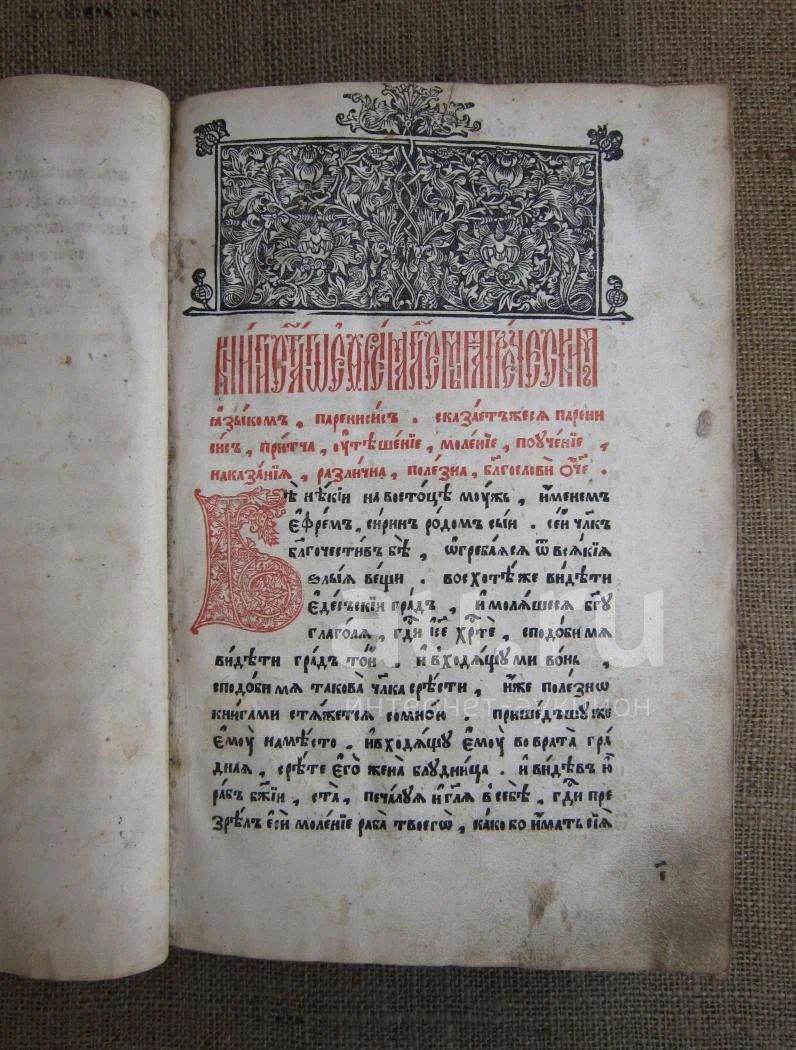 КНИГИ СТ҃АГѠ ЕФРЕМА, ГЛ҃ЕМЫѦ ГРЕЧЕСКИМЪ
ꙗ҆зы́комъ, паренисисъ. сказа́етъжесѧ парени
сисъ, при́тча, ѹ҆тѣше́нїе, моле́нїе, поꙋче́нїе,
наказа́нїѧ, разли́чна, поле́зна, бл҃гослови́ ѻ҆́ч҃е.
Бѣ̀ нѣ́кїи на восто́цѣ мꙋ́жъ, и҆́менемъ
є҆фре́мъ, си́ринъ ро́домъ сы́и. се́и чл҃къ
бл҃гочести́въ бѣ̀, ѡ҆греба́ѧсѧ ѿ всѧ́кїѧ
ѕлы́ѧ ве́щи. восхотѣ́ же ви́дѣти
є҆де́съскїи гра́дъ, и҆ молѧ́шесѧ бг҃ꙋ
глаго́лѧ, гд҇и і҆с҃е хр҇те́, сподо́би мѧ
ви́дѣти гра́дъ то́и. и҆ входѧ́щꙋ ми во́нь,
сподо́би мѧ такова̀ чл҃ка срѣ́сти, и҆́же поле́знѡ
кни́гами стѧ́жетсѧ со мно́ю. прише́дъшꙋ же
є҆мꙋ̀ на мѣ́сто. и҆ входѧ́щꙋ є҆мꙋ̀ во врата̀ гра́
днаѧ, срѣ́те є҆го̀ жена̀ блꙋдни́ца. и҆ ви́дѣвъ ю҆̀
ра́бъ бж҃їи, ста̀, печа́лꙋѧ и҆ гл҃ѧ в себѣ̀, гд҇и пре
зрѣ́лъ є҆сѝ моле́нїе раба̀ твоегѡ̀, ка́ко бо и҆́мать сїѧ̀
av.ru
интернет-аукцион